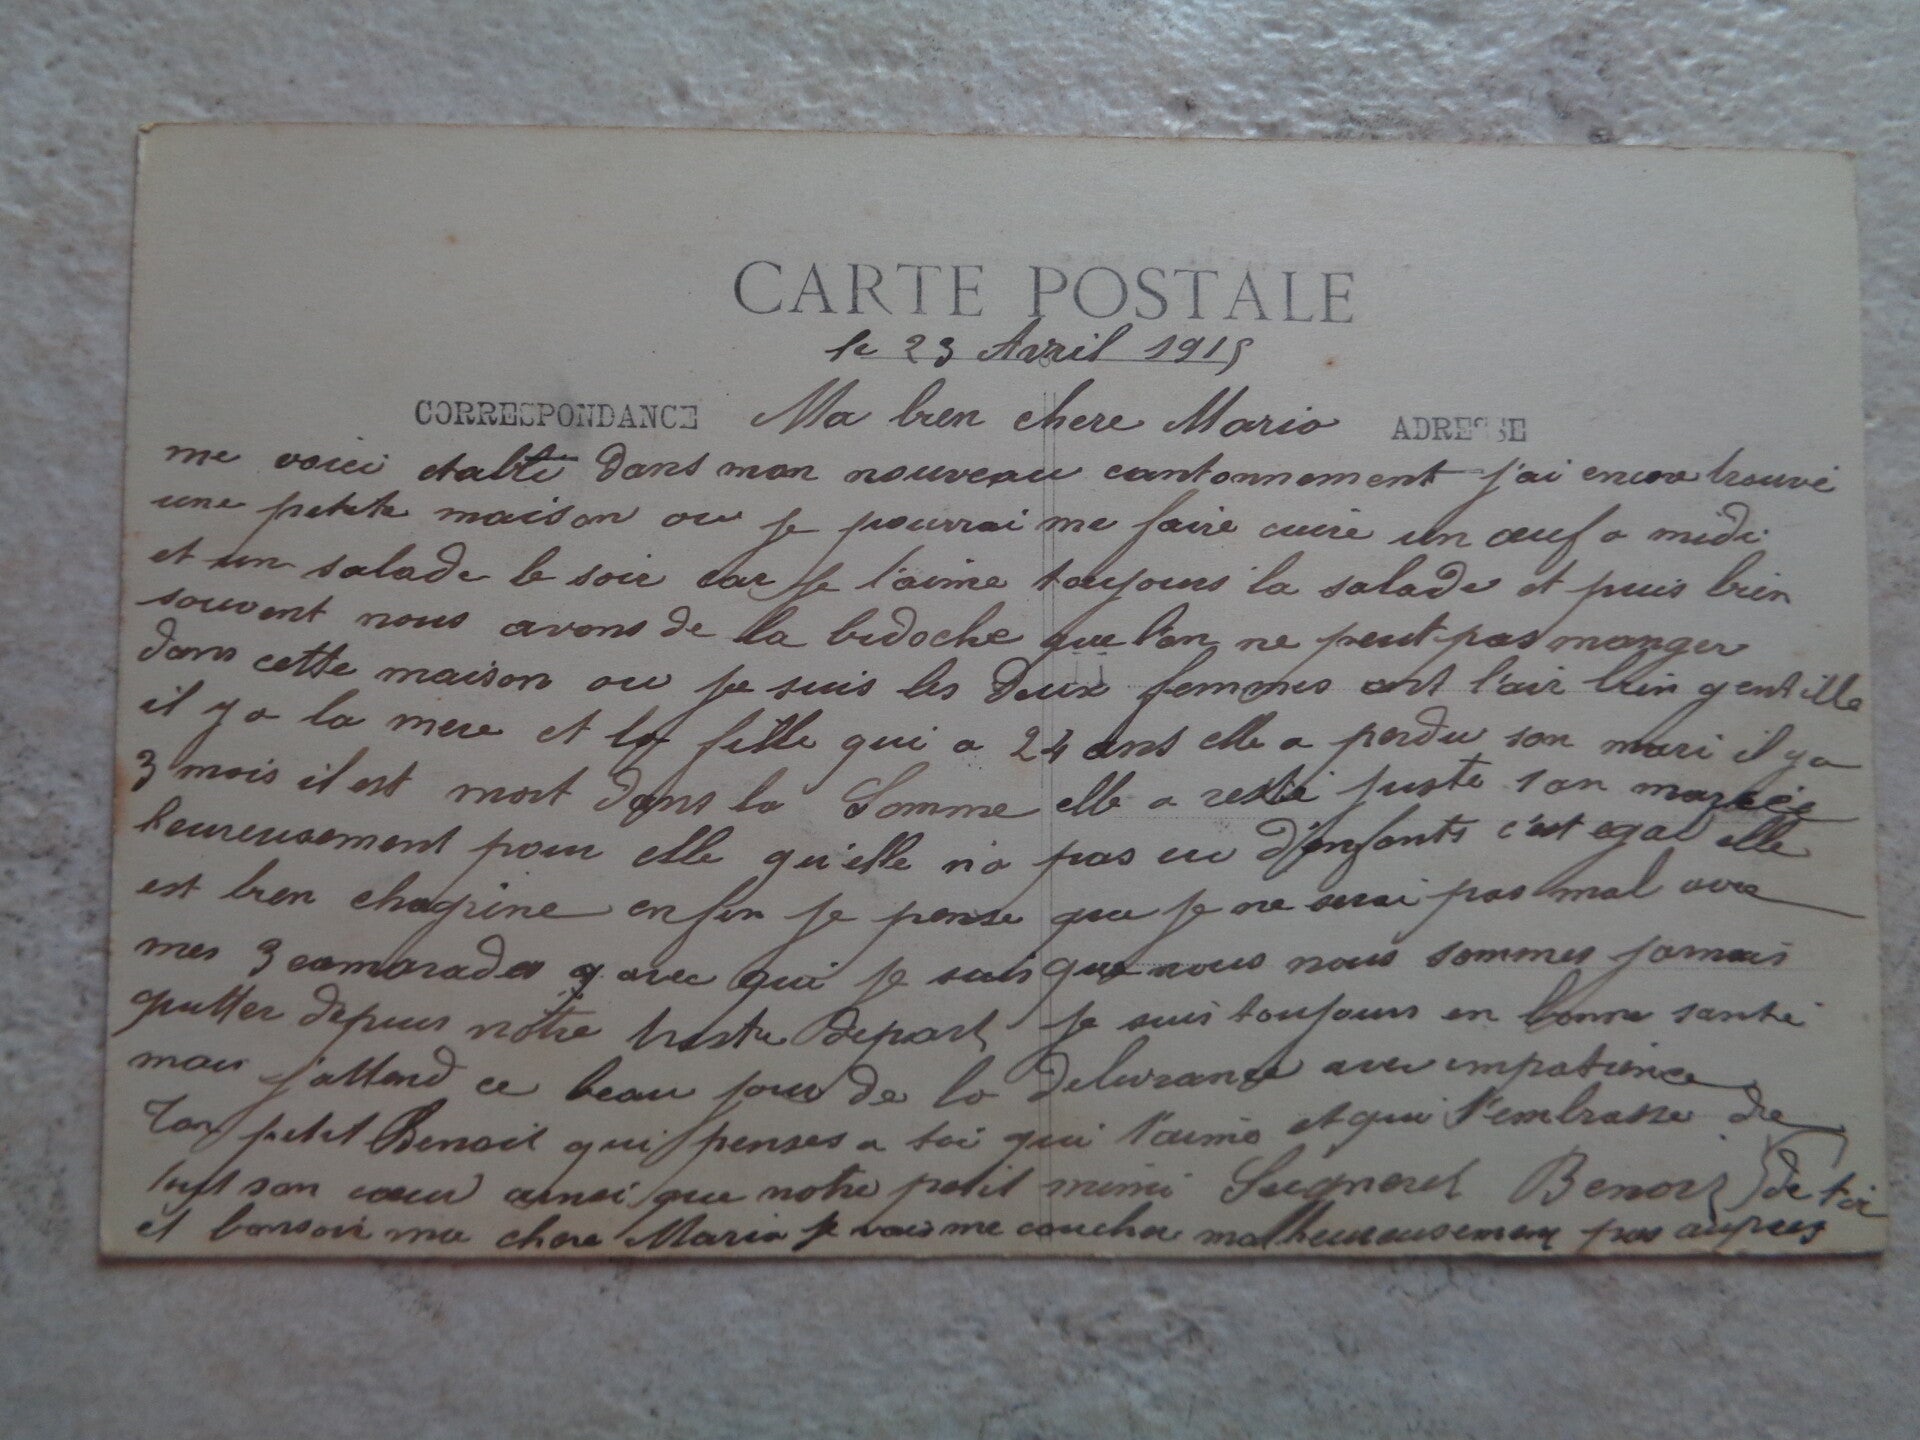 CARTE POSTALE
le 23 Avril 1915
CORRESPONDANCE Ma bien chere Maria ADRESSE
me voici etabli dans mon nouveau cantonnement j'ai encore trouvé
une petite maison ou je pourrai me faire cuire un œuf a midi
et un salade le soir car je l'aime toujours la salade et puis bien
souvent nous avons de la bidoche que l'on ne peut pas manger
dans cette maison ou je suis les deux femmes ont l'air bien gentille
il y a la mere et la fille qui a 24 ans elle a perdu son mari il y a
3 mois il est mort dans la Somme elle a resté juste 1 an mariée
heureusement pour elle qu'elle n'a pas eu d'enfants c'est egal elle
est bien chagrine enfin je pense que je ne serai pas mal avec
mes 3 camarades avec qui je suis que nous nous sommes jamais
quitter depuis notre triste depart je suis toujours en bonne santé
mais j'attend ce beau jour de la delivrance avec impatience
Ton petit Benoit qui penses a toi qui t'aime et qui t'embrasse de
tout son cœur ainsi que notre petit mimi Benoit
et bonsoir ma chere Maria je vais me coucher malheureusement pas aupres
de toi